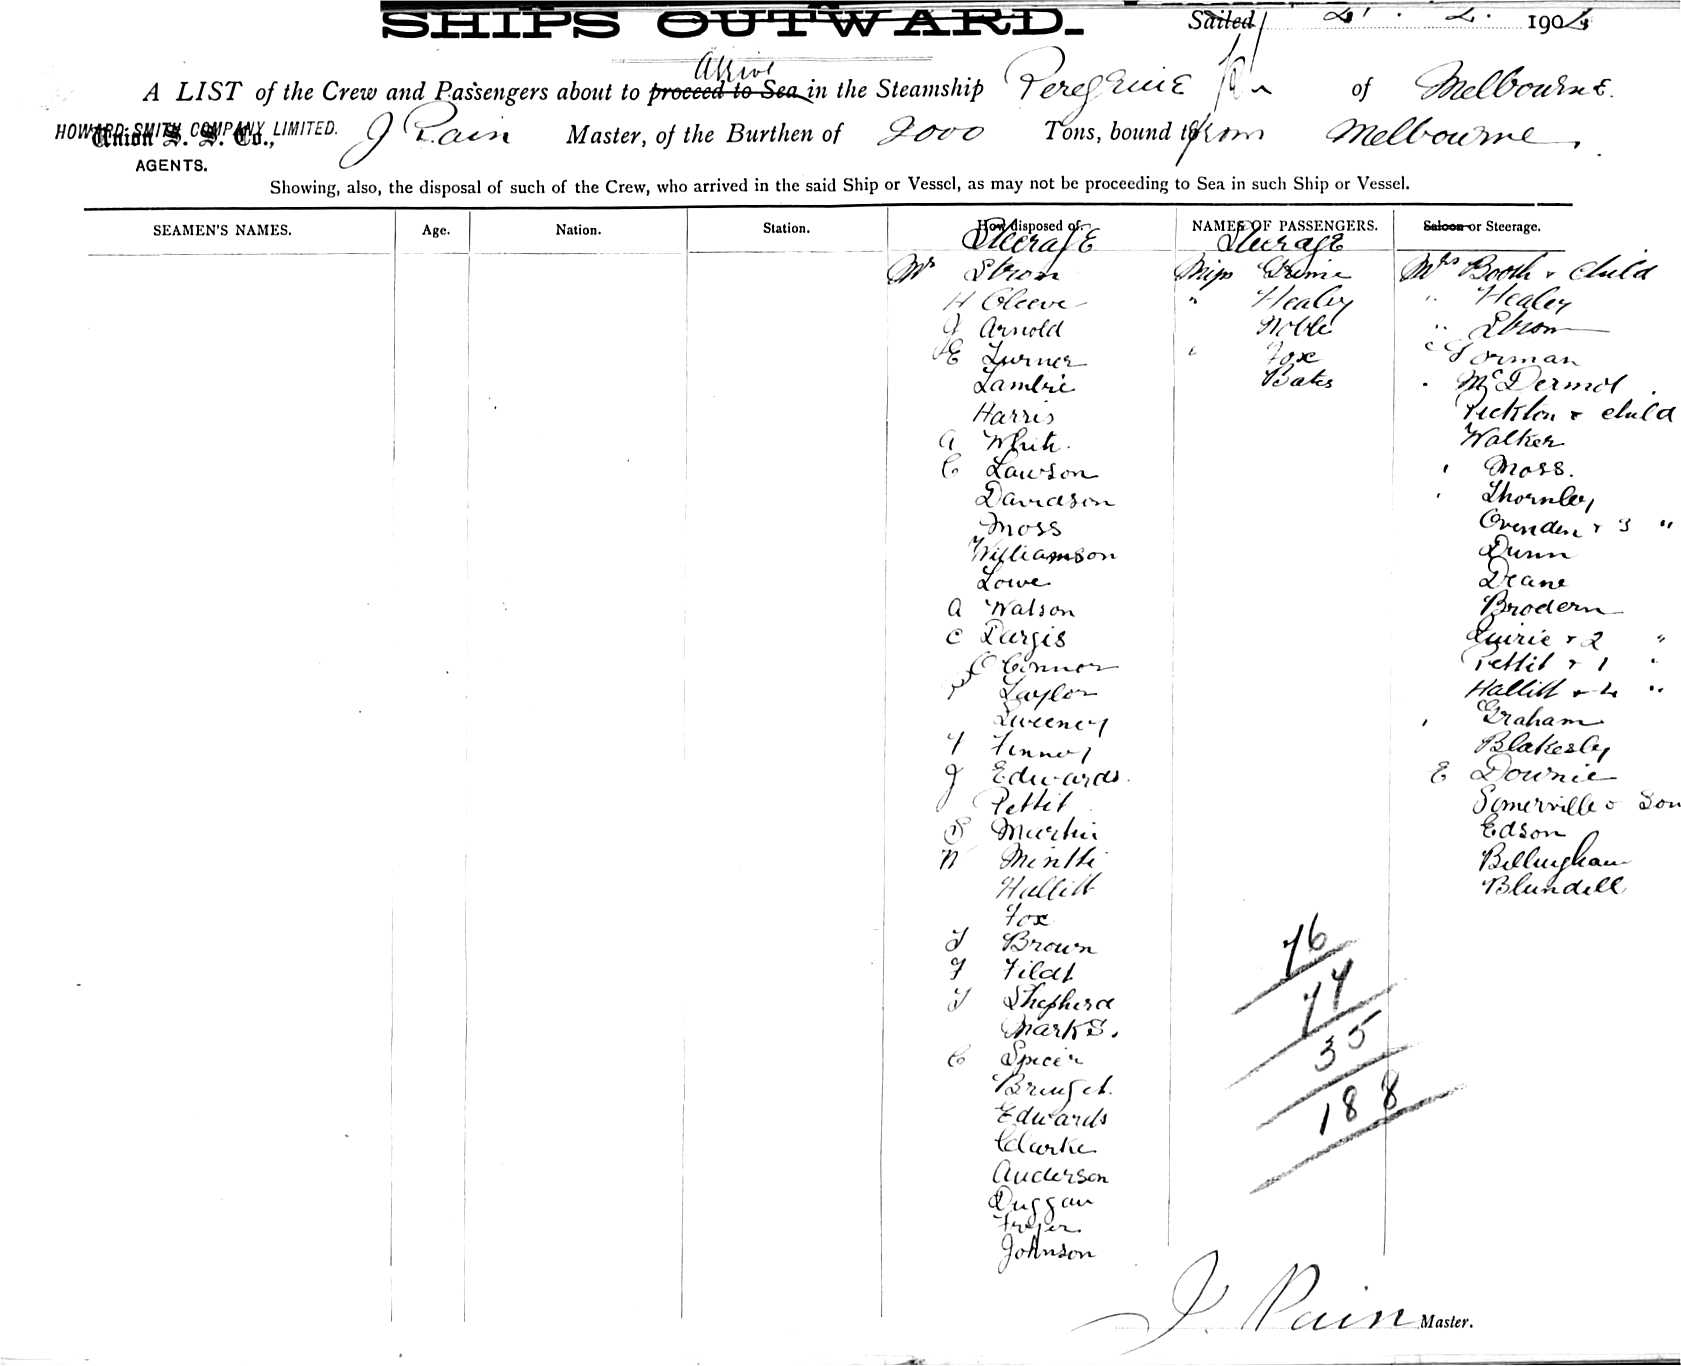 SHIPS OUTWARD.
Sailed 2 . 1904
Arrive
A LIST of the Crew and Passengers about to proceed to Sea in the Steamship Peregrine of Melbourne.
HOWARD SMITH COMPANY LIMITED.
Union S. S. Co.,
AGENTS.
J Pain Master, of the Burthen of 2000 Tons, bound from Melbourne.
Showing, also, the disposal of such of the Crew, who arrived in the said Ship or Vessel, as may not be proceeding to Sea in such Ship or Vessel.
SEAMEN'S NAMES. Age. Nation. Station. How disposed of. NAMES OF PASSENGERS. Saloon or Steerage.
Steerage Steerage
Mr Strom Miss Grime Mrs Booth & child
H Cleeve " Healey " Healey
J Arnold Noble " Strom
E Turner Fox Gorman
Lambie Bates McDermot
Harris Pickton & child
A White Walker
C Lawson Moss.
Davidson Thornley
Moss Ovenden & 3 "
Williamson Dunn
Lowe Deane
A Watson Brodern
C Pargis & 2 "
O'Connor Pettit & 1 "
P Taylor Hallitt & 4 "
Sweeney Graham
Finney Blakesley
J Edwards E Downie
Pettit Somerville & Son
S Martin Edson
N Billingham
Hallitt Blundell
Fox
T Brown
F
T Shepherd
Marks.
C Spicer
Edwards
Clarke
Anderson
Duggan
Fryer
Johnson
76
77
35
188
J. Pain Master.